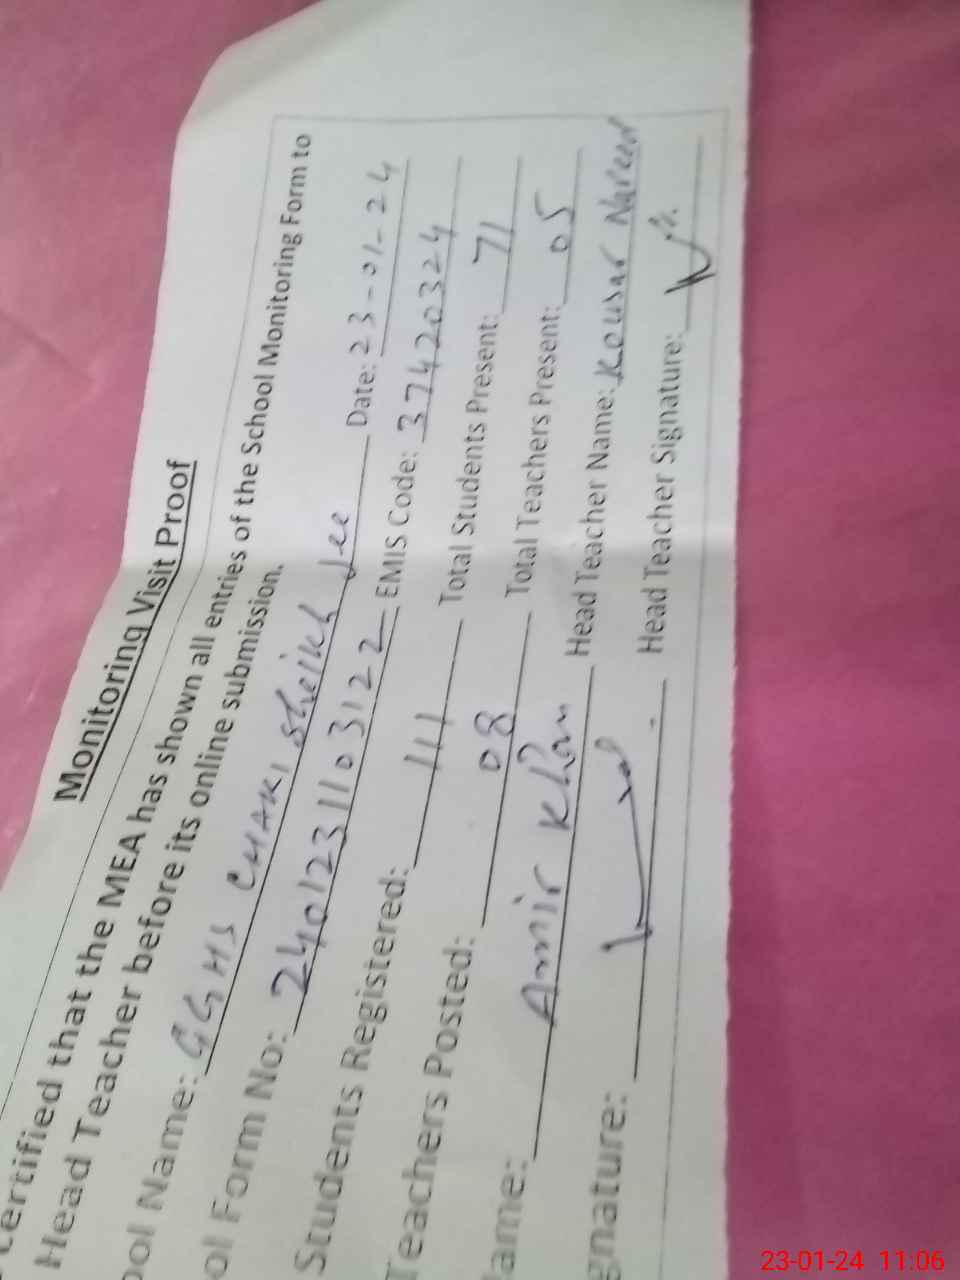 Monitoring Visit Proof
Certified that the MEA has shown all entries of the School Monitoring Form to
Head Teacher before its online submission.
ool Name: GGHS CHAKI Sheikh Jee Date: 23-01-24
ol Form No: 2401231103122 EMIS Code: 37420324
Students Registered: 111 Total Students Present: 71
Teachers Posted: 08 Total Teachers Present: 05
lame: Amir Khan Head Teacher Name: Kousar Nareen
gnature: Head Teacher Signature:
23-01-24 11:06